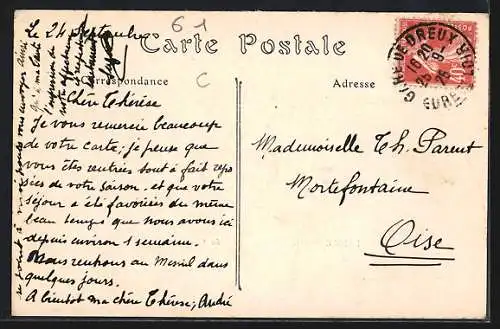 Le 24 Septembre
61
Carte Postale
Correspondance
Adresse
C
GARE DE DREUX
18 20
25 -9
26
EURE
40
Chère Thérèse
Je vous remercie beaucoup
de votre carte; je pense que
vous êtes rentrées tout à fait repo
sées de votre saison, et que votre
séjour a été favorisé du même
beau temps que nous avons ici
depuis environ 1 semaine.
Nous rentrons au Mesnil dans
quelques jours.
A bientôt ma chère Thérèse, André
Mademoiselle Th. Parent
Mortefontaine
Oise